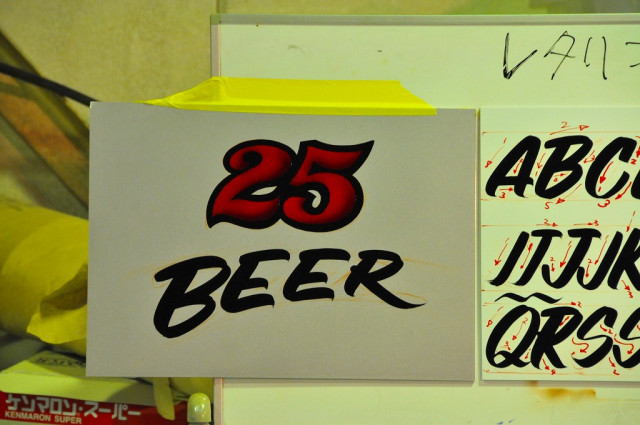 レタリ
25
BEER
ABC
IJJK
QRSS
ケンマロン・スーパー
KENMARON SUPER